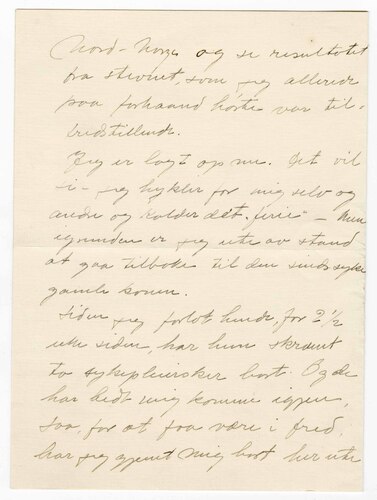 Nord-Norge og se resultatet
fra stevnet, som jeg allerede
paa forhaand hørte var til-
fredstillende.
Jeg er lagt op nu. Det vil
si - jeg hykler for mig selv og
andre og kalder det "ferie" - Men
igrunden er jeg ute av stand
at gaa tilbake til den sindssyke
gamle konen.
Siden jeg forlot hende, for 2 1/2
uke siden, har hun skræmt
to sykepleiersker bort. Og de
har bedt mig komme igjen,
saa, for at faa være i fred,
har jeg gjemt mig bort her ute